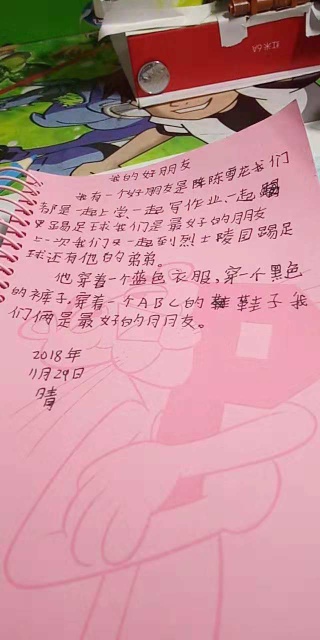 红米6A
我的好朋友
我有一个好朋友是陈雪龙我们
都是一起上学一起写作业、一起踢
足球我们是最好的朋友
上一次我们又一起到烈士陵园踢足
球还有他的弟弟。
他穿着一个蓝色衣服,穿一个黑色
的裤子,穿着一个ABC的鞋子我
们俩是最好的朋友。
2018年
11月29日
晴